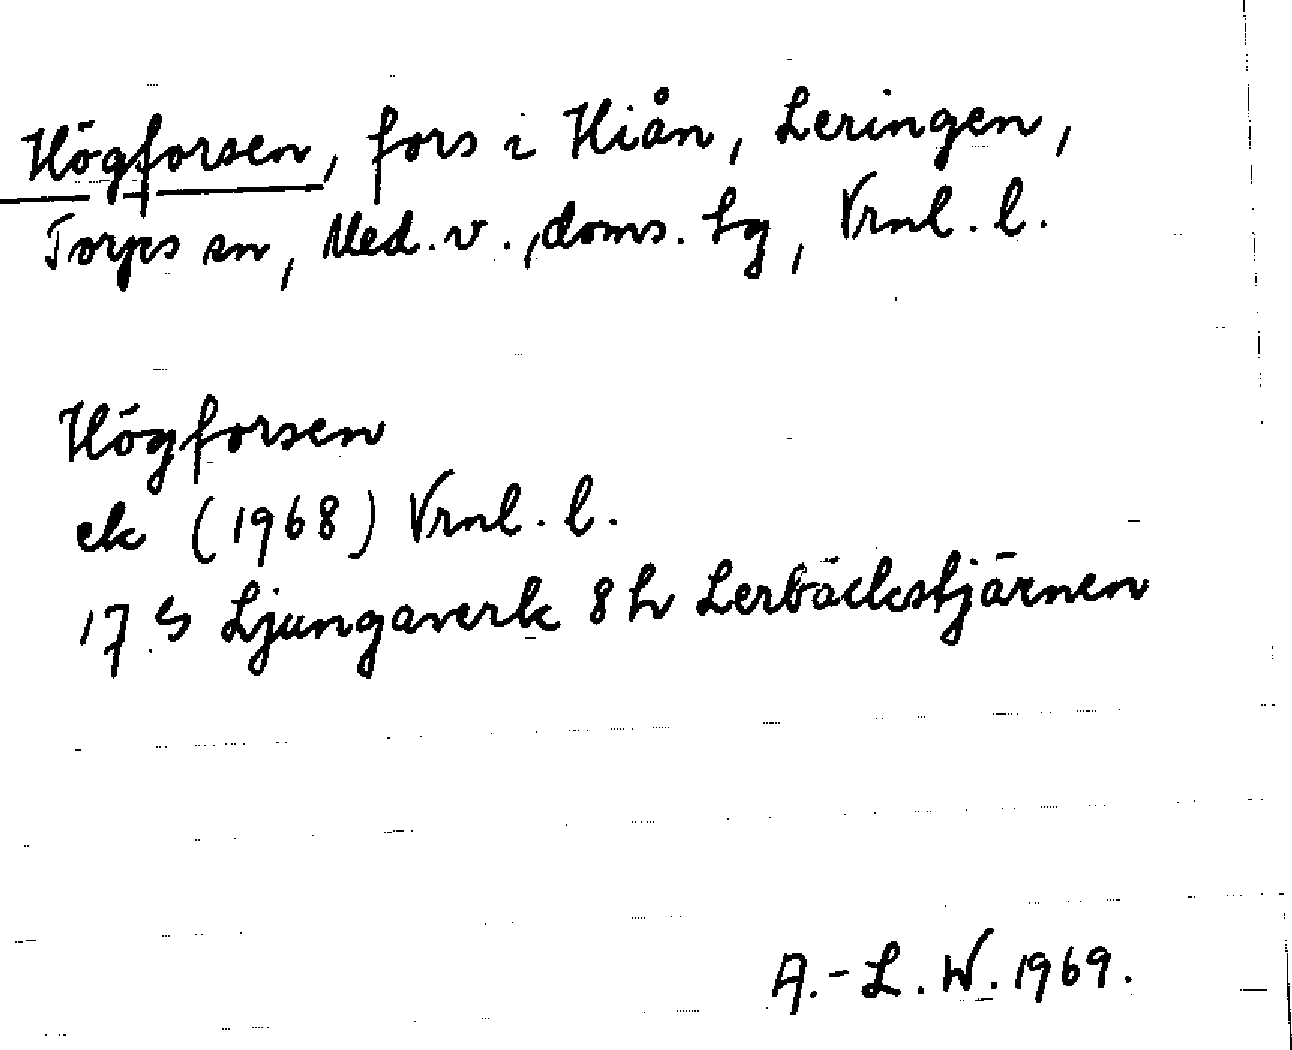 Högforsen, fors i Hiån, Leringen,
Torps sn, Med. v., doms. hg, Vrnl. l.
Högforsen
ek (1968) Vrnl. l.
17 S Ljungaverk 8 h Lerbäckstjärnen
A.-L. W. 1969.